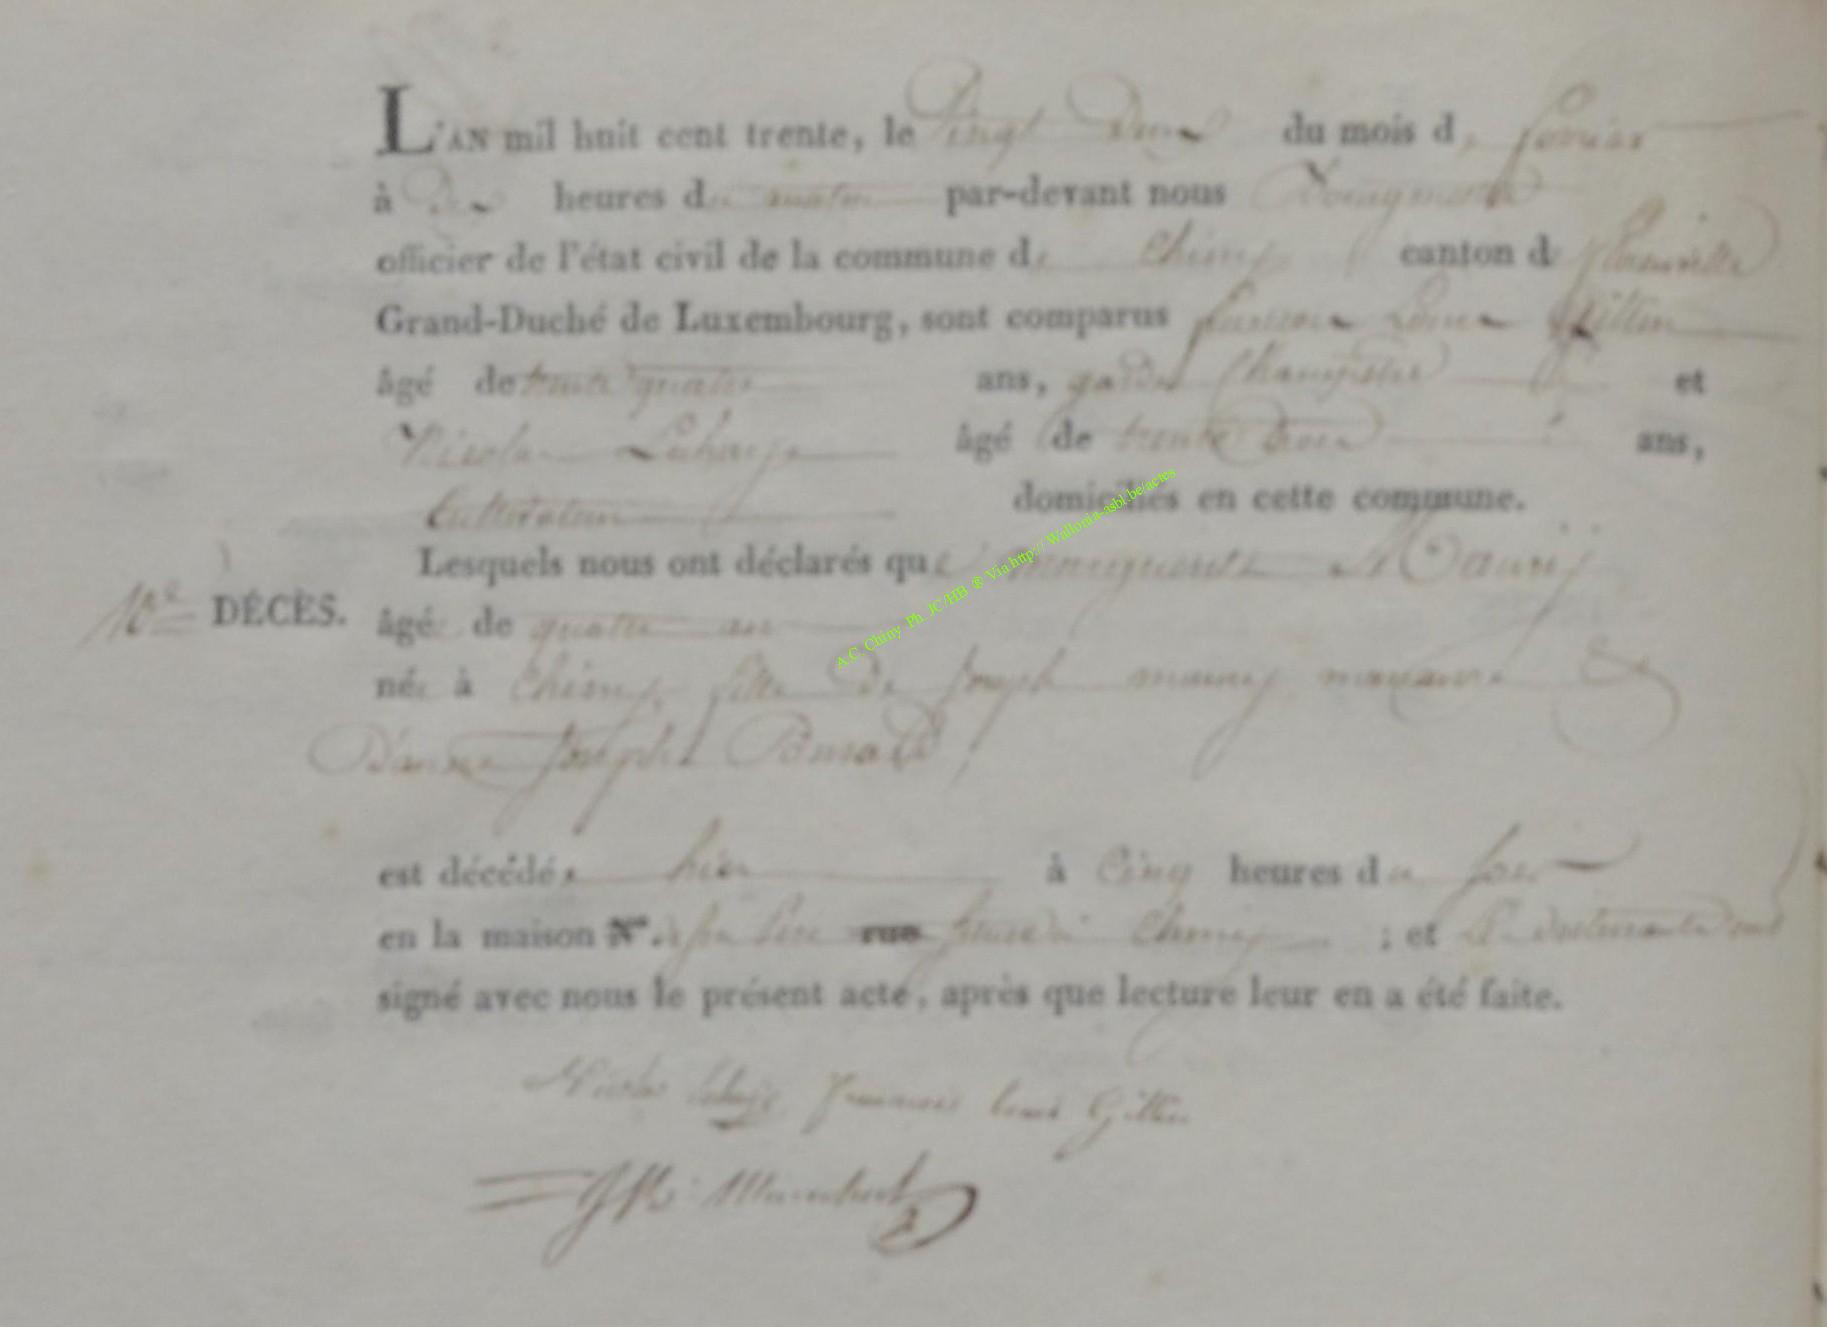 L'AN mil huit cent trente, le Vingt Deux du mois de fevrier
à Dix heures du matin par-devant nous Bourgmestre
officier de l'état civil de la commune de Chiny canton de Florenville
Grand-Duché de Luxembourg, sont comparus francois Louis Gillin
âgé de trente quatre ans, garde Champetre et
Nicolas Lahaye âgé de trente trois ans,
Cultivateur domiciliés en cette commune.
Lesquels nous ont déclarés que Mauij
10e DÉCÈS. âgée de quatre an
née à Chiny, fille de Joseph mauij manœuvre &
D'anne Joseph
est décédée hier à Cinq heures du soir
en la maison N°. de son père rue située à Chiny ; et
signé avec nous le présent acte, après que lecture leur en a été faite.
Nicolas lahaije francois louis Gillin
A.C. Chiny Ph_JC/HB ® Via http:// Wallonia-asbl.be/actes